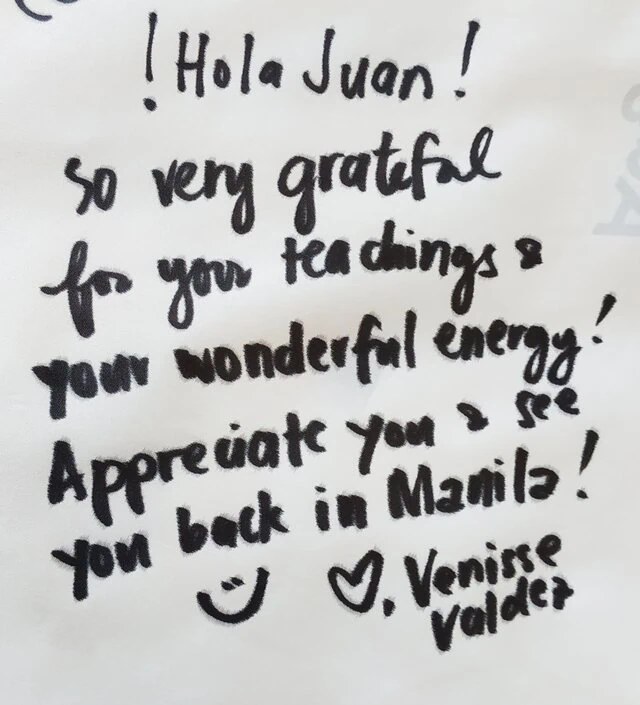 ! Hola Juan !
So very grateful
for your teachings &
your wonderful energy!
Appreciate you & see
you back in Manila!
Venisse
Valdez